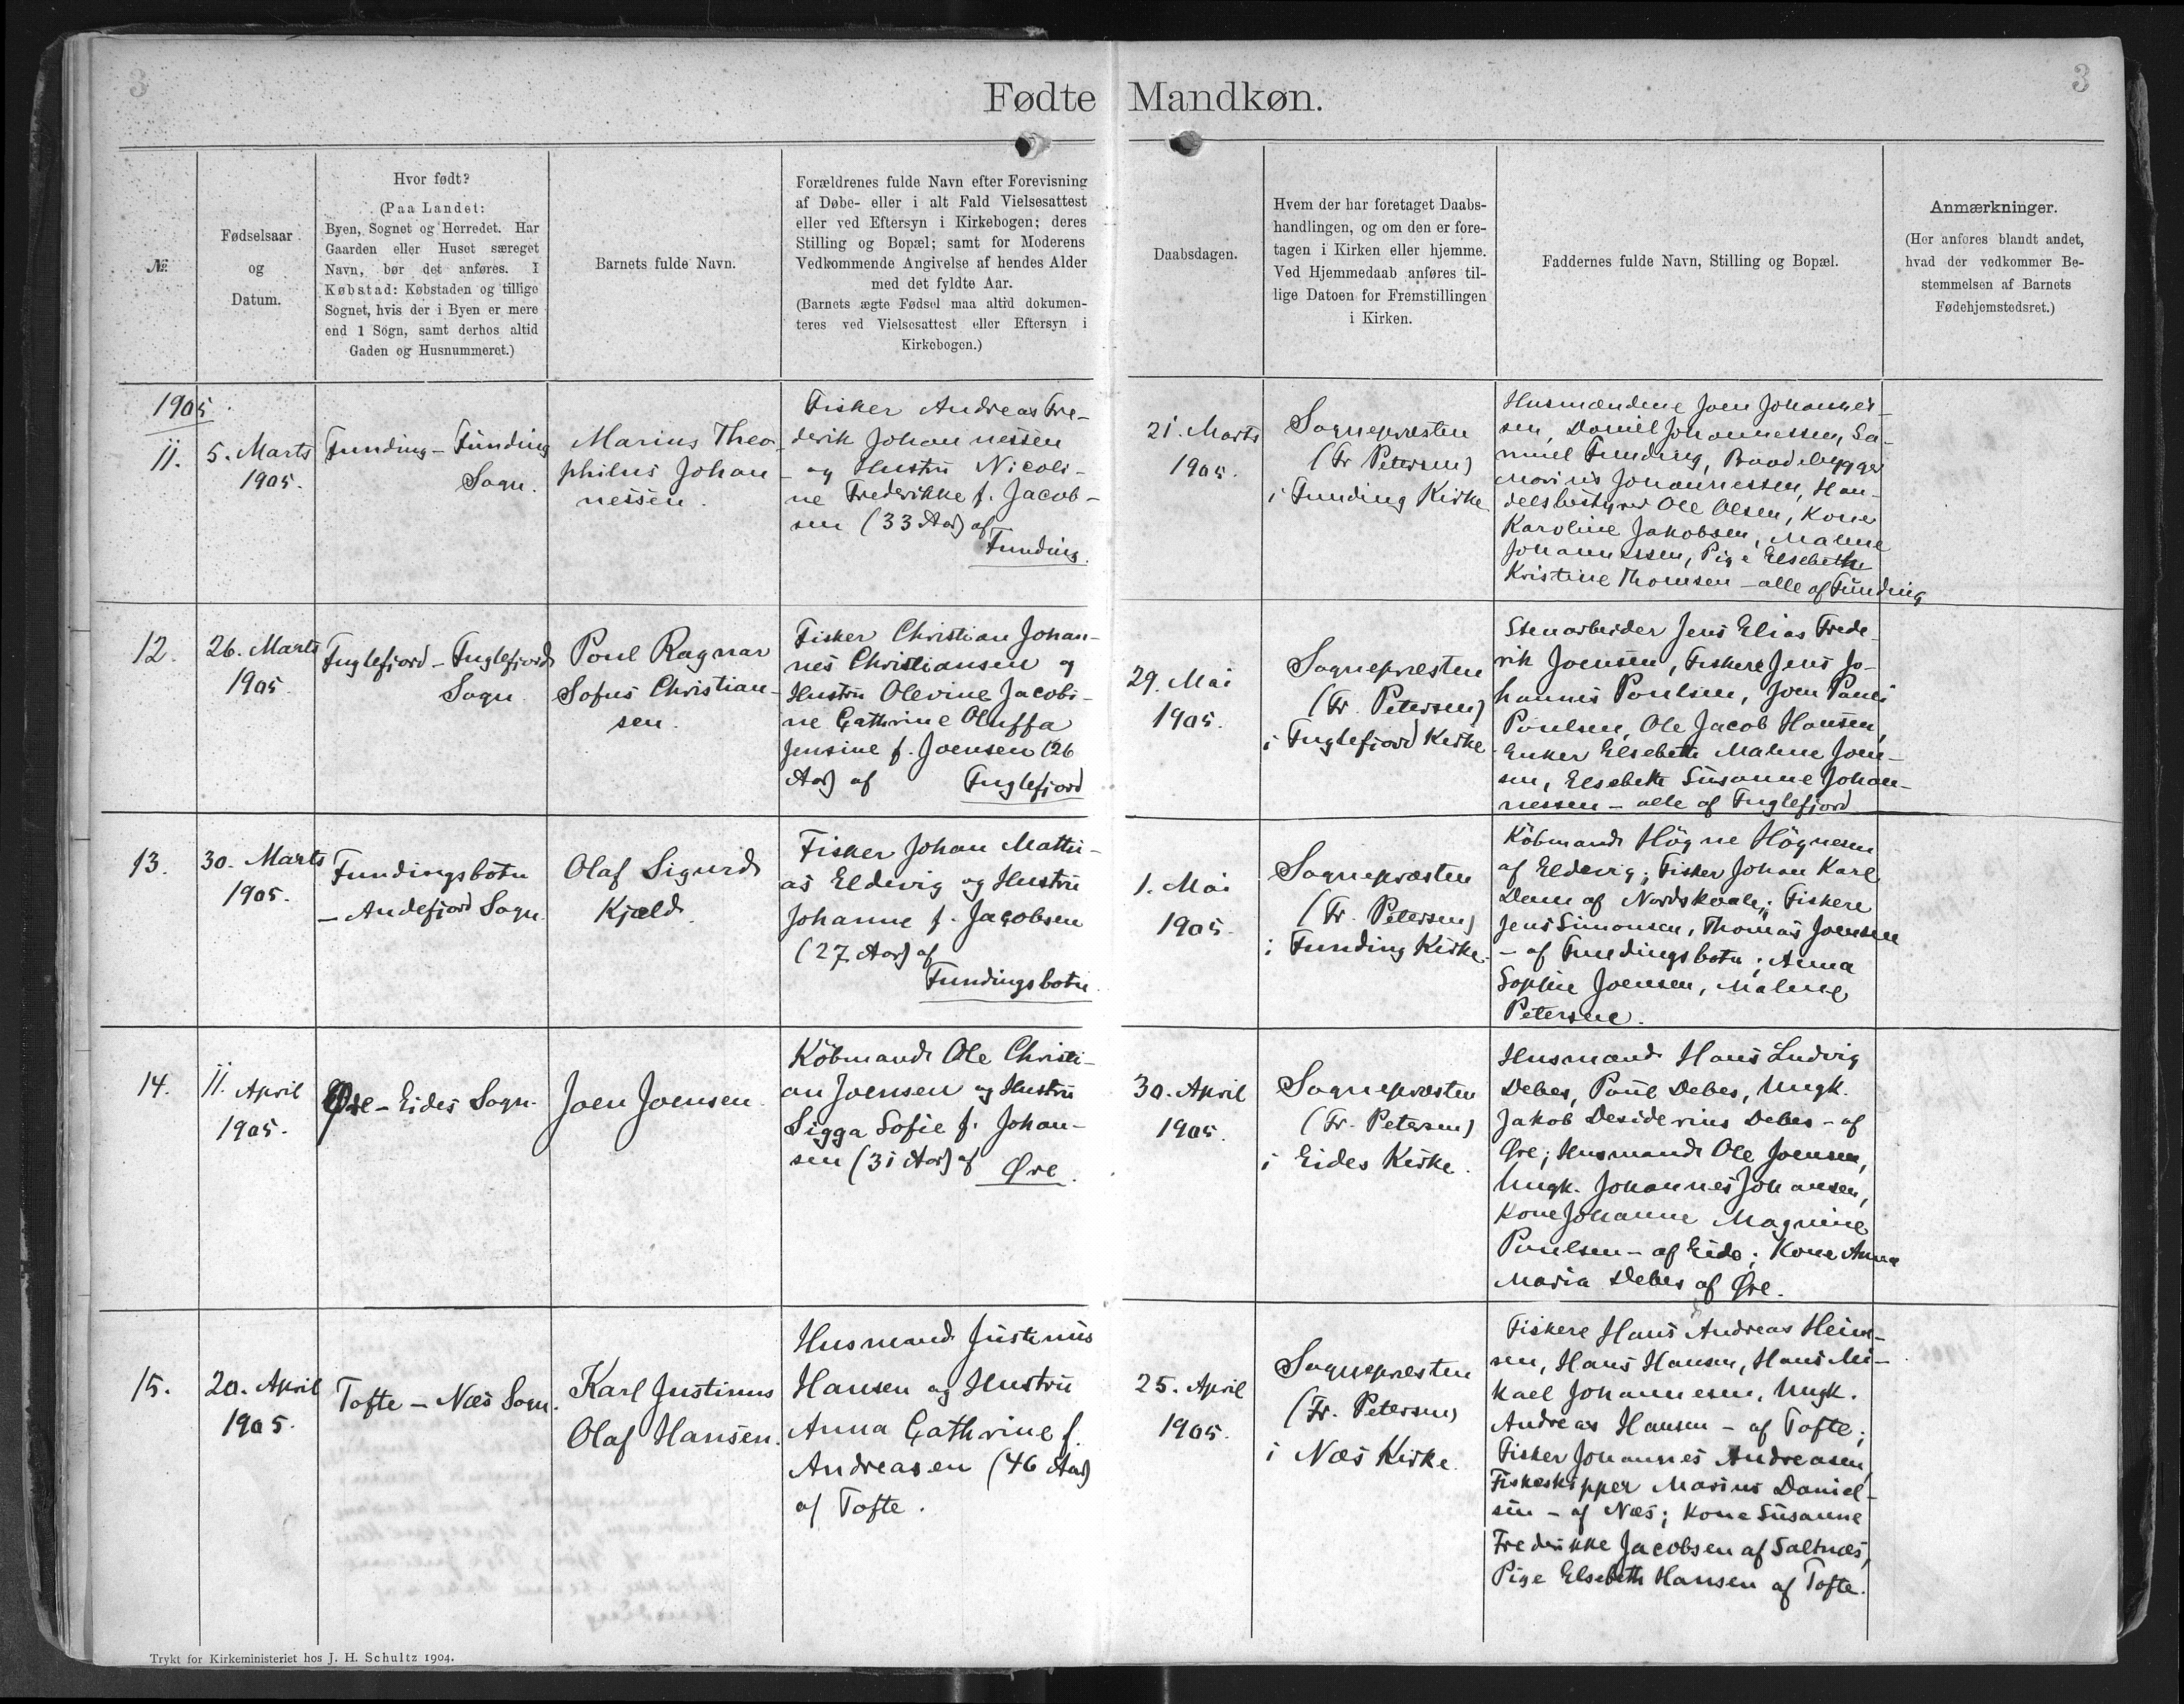 3
Fødte Mandkøn.
3
№
Fødselsaar
og
Datum.
Hvor født?
(Paa Landet:
Byen, Sognet og Herredet. Har
Gaarden eller Huset særeget
Navn, bør det anføres. I
Købstad: Købstaden og tillige
Sognet, hvis der i Byen er mere
end 1 Sogn, samt derhos altid
Gaden og Husnummeret.)
Barnets fulde Navn.
Forældrenes fulde Navn efter Forevisning
af Døbe- eller i alt Fald Vielsesattest
eller ved Eftersyn i Kirkebogen; deres
Stilling og Bopæl; samt for Moderens
Vedkommende Angivelse af hendes Alder
med det fyldte Aar.
(Barnets ægte Fødsel maa altid dokumen-
teres ved Vielsesattest eller Eftersyn i
Kirkebogen.)
Daabsdagen.
Hvem der har foretaget Daabs-
handlingen, og om den er fore-
tagen i Kirken eller hjemme.
Ved Hjemmedaab anføres til-
lige Datoen for Fremstillingen
i Kirken.
Faddernes fulde Navn, Stilling og Bopæl.
Anmærkninger.
(Her anføres blandt andet,
hvad der vedkommer Be-
stemmelsen af Barnets
Fødehjemstedsret.)
1905
11.
5. Marts
1905.
Funding - Funding
Sogn.
Marius Theo-
philus Johan
nessen.
Fisker Andreas Fre-
derik Johannessen
- og Hustru Nicoli-
ne Frederikke f. Jacob-
sen (33 Aar) af
Funding.
21. Marts
1905.
Sognepræsten
(Fr Petersen)
i Funding Kirke
Husmændene Joen Johannes-
sen, Daniel Johannessen, Sa-
muel Funding, Baadebygger
Marius Johannessen, Han-
delsbestyrer Ole Olsen, Kone
Karoline Jakobsen, Malene
Johannessen, Pige Elsebeth
Kristine Thomsen - alle af Funding
12.
26. Marts
1905
Fuglefjord - Fuglefjords
Sogn.
Poul Ragnar
Sofus Christian-
sen.
Fisker Christian Johan-
nes Christiansen og
Hustru Olevine Jacobi-
ne Cathrine Oluffa
Jensine f. Joensen (26
Aar) af Fuglefjord
29. Mai
1905.
Sognepræsten
(Fr. Petersen)
i Fuglefjord Kirke
Stenarbeider Jens Elias Frede-
rik Joensen, Fiskere Jens Jo-
hannes Poulsen, Joen Pauli
Poulsen, Ole Jacob Hansen,
Enker Elsebeth Malene Joen-
sen, Elsebeth Susanne Johan-
nessen - alle af Fuglefjord
13.
30. Marts
1905.
Fundingsbotn
- Andefjord Sogn.
Olaf Sigurd
Kjæld.
Fisker Johan Matthi-
as Eldevig og Hustru
Johanne f. Jacobsen
(27 Aar) af
Fundingsbotn.
1. Mai
1905.
Sognepræsten
(Fr. Petersen)
i Funding Kirke.
Købmand Högne Högnesen
af Eldevig; Fisker Johan Karl
Dam af Nordskaale; Fiskere
Jens Simonsen, Thomas Joensen
- af Fundingsbotn; Anna
Sophie Joensen, Malene
Petersen.
14.
11. April
1905.
Øre - Eides Sogn.
Joen Joensen.
Købmand Ole Christi-
an Joensen og Hustru
Sigga Sofie f. Johan-
sen (31 Aar) af Øre.
30. April
1905.
Sognepræsten
(Fr. Petersen)
i Eides Kirke.
Husmand Hans Ludvig
Debes, Poul Debes, Ungk.
Jakob Desiderius Debes - af
Øre; Husmand Ole Joensen,
Ungk. Johannes Johansen,
Kone Johanne Magnine
Poulsen - af Eide; Kone Anna
Maria Debes af Øre.
15.
20. April
1905.
Tofte - Næs Sogn.
Karl Justinus
Olaf Hansen.
Husmand Justinus
Hansen og Hustru
Anna Cathrine f.
Andreasen (46 Aar)
af Tofte.
25. April
1905.
Sognepræsten
(Fr. Petersen)
i Næs Kirke.
Fiskere Hans Andreas Hein-
sen, Hans Hansen, Hans Mi-
kael Johannesen, Ungk.
Andreas Hansen - af Tofte;
Fisker Johannes Andreasen,
Fiskeskipper Marius Daniel-
sen - af Næs; Kone Susanne
Frederikke Jacobsen af Saltnæs,
Pige Elsebeth Hansen af Tofte.
Trykt for Kirkeministeriet hos J. H. Schultz 1904.